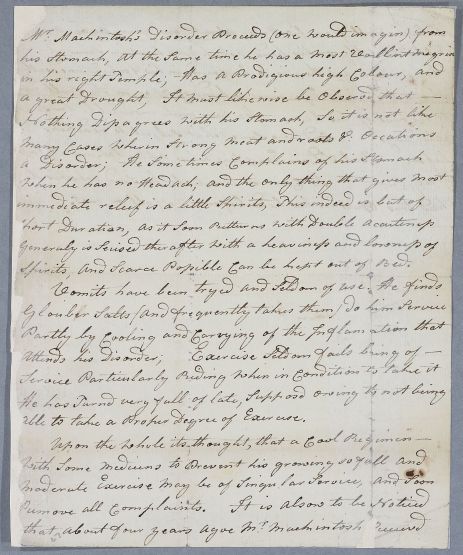 Mr. Mackintosh's Disorder Proceeds (one would imagin) from
his Stomach, At the Same time he has a most Voillint Megrim
in his right Temple, Has a Prodigious high Colour, and
a great Drought, It must likewise be Observed that —
Nothing Disagrees with his Stomach, So it is not like
Many Cases wherein Strong meat and roots &c Occations
a Disorder; He Sometimes Complains of his Stomach
when he has no Headach, and the only thing that gives most
immediate releif is a little Spirits, This indeed is but of
Short Duration, as it Soon Retturns with Double acuteness
generaly is Seised therafter with a heaviness and lowness of
Spirits, and Scarce Possible Can be kept out of Bed.
Vomits have been tryed and Seldom of use. He finds
Glouber Salts (And frequently takes them) do him Service
Partly by Cooling and Carrying of the Inflamation that
attends his Disorder; Exercise Seldom fails being of —
Service Particularly Riding when in Condition to take it
He has Turnd very full of late, Supposd owing to not being
able to take a Proper Degree of Exercise.
Upon the whole its thought, that a Cool Regimen —
With Some medicins to Prevent his growing so full and
moderate Exercise may be of Singular Service, and Soon
Remove all Complaints. It is alsow to be Noticed
that about four years agoe Mr. Mackintosh Received